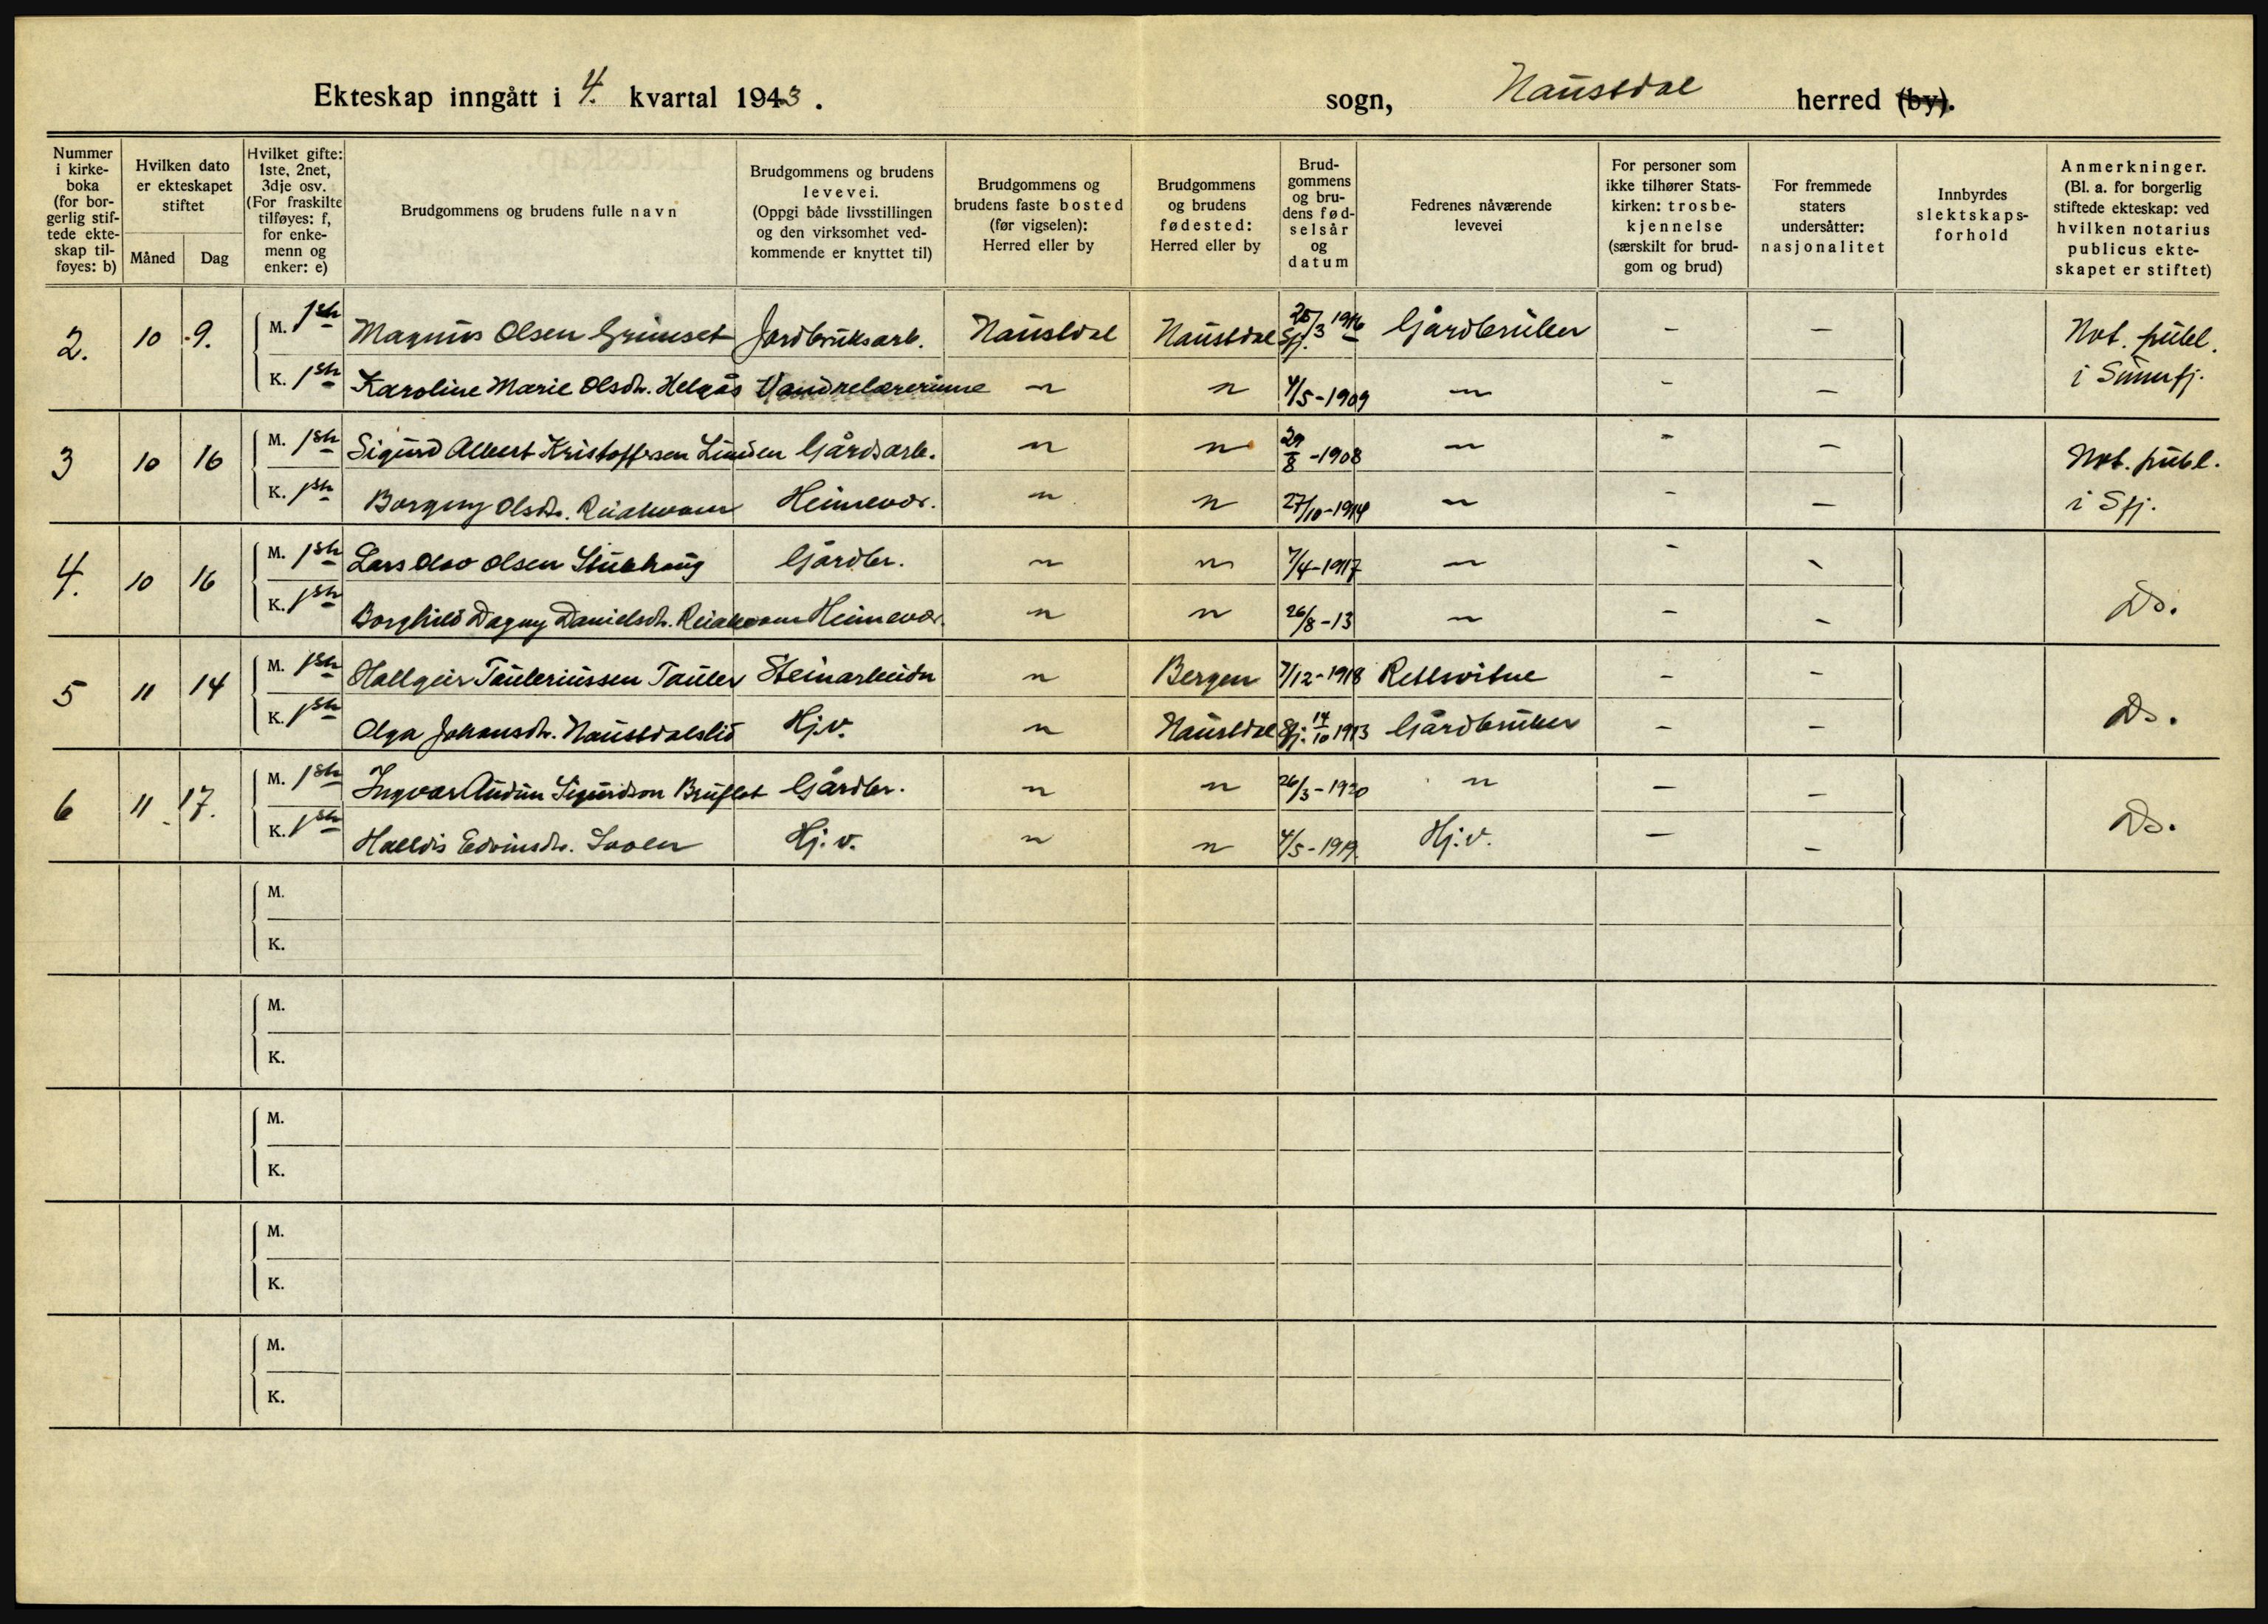 Ekteskap inngått i 4. kvartal 1943. sogn, Naustdal herred (by).
Nummer i kirke- boka (for bor- gerlig stif- tede ekte- skap til- føyes: b)
Hvilken dato er ekteskapet stiftet
Måned
Dag
Hvilket gifte: 1ste, 2net, 3dje osv. (For fraskilte tilføyes: f, for enke- menn og enker: e)
Brudgommens og brudens fulle navn
Brudgommens og brudens levevei. (Oppgi både livsstillingen og den virksomhet ved- kommende er knyttet til)
Brudgommens og brudens faste bosted (før vigselen): Herred eller by
Brudgommens og brudens fødested: Herred eller by
Brud- gommens og bru- dens fød- selsår og datum
Fedrenes nåværende levevei
For personer som ikke tilhører Stats- kirken: trosbe- kjennelse (særskilt for brud- gom og brud)
For fremmede staters undersåtter: nasjonalitet
Innbyrdes slektskaps- forhold
Anmerkninger. (Bl. a. for borgerlig stiftede ekteskap: ved hvilken notarius publicus ekte- skapet er stiftet)
2. 10 9. M. 1ste Magnus Olsen Grimset Jordbruksarb. Naustdal Naustdal Sfj. 25/3 1916 Gårdbruker - - Not. publ.
K. 1ste Karoline Marie Olsdtr. Helgås Vandrelærerinne " " 4/5-1909 " - - i Sunnfj.
3 10 16 M. 1ste Sigurd Albert Kristoffersen Linden Gårdsarb. " " 29/8-1908 " - - Not. publ.
K. 1ste Borgny Olsdtr. Reiakvam Heimevær. " " 27/10-1914 " - - i Sfj.
4. 10 16 M. 1ste Lars Olav Olsen Stubhaug Gårdbr. " " 7/4-1917 " - -
K. 1ste Borghild Dagny Danielsdtr. Reiakvam Heimevær. " " 26/8-13 " - - Do.
5 11 14 M. 1ste Hallgeir Tauleriussen Tauler Steinarbeider " Bergen 7/12-1918 Rettsvitne - -
K. 1ste Olga Johansdtr. Naustdalslid Hj.v. " Naustdal Sfj. 14/10 1913 Gårdbruker - - Do.
6 11 17. M. 1ste Ingvar Audun Sigurdson Bruflot Gårdbr. " " 26/3-1920 " - -
K. 1ste Halldis Edvinsdtr. Hj.v. " " 4/5-1919. Hj.v. - - Do.
M.
K.
M.
K.
M.
K.
M.
K.
M.
K.